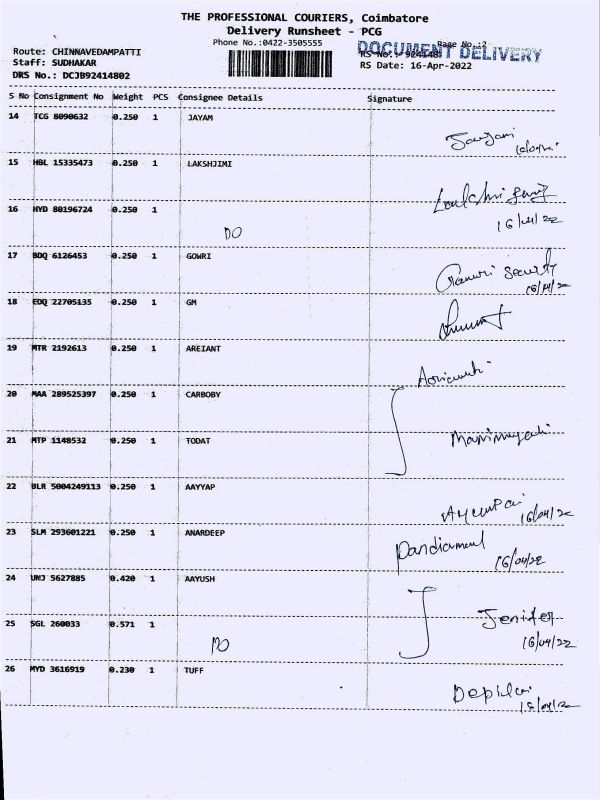 THE PROFESSIONAL COURIERS, Coimbatore
Delivery Runsheet - PCG
Phone No.:0422-3505555
Page No.:2
DOCUMENT DELIVERY
Route: CHINNAVEDAMPATTI
RS No.:
Staff: SUDHAKAR
RS Date: 16-Apr-2022
DRS No.: DCJB92414802
S No Consignment No Weight PCS Consignee Details Signature
14 TCG 8090632 0.250 1 JAYAM
15 HBL 15335473 0.250 1 LAKSHJIMI
16/04/22
16 HYD 80196724 0.250 1
DO
17 BDQ 6126453 0.250 1 GOWRI
Gowri Security
18 EDQ 22705135 0.250 1 GM
19 MTR 2192613 0.250 1 AREIANT
20 MAA 289525397 0.250 1 CARBOBY
21 MTP 1148532 0.250 1 TODAT
22 BLR 5004249113 0.250 1 AAYYAP
16/04/22
23 SLM 293601221 0.250 1 ANARDEEP
Pandiammal
16/04/22
24 UNJ 5627885 0.420 1 AAYUSH
Jenifer
25 SGL 260033 0.571 1
DO
16/04/22
26 MYD 3616919 0.230 1 TUFF